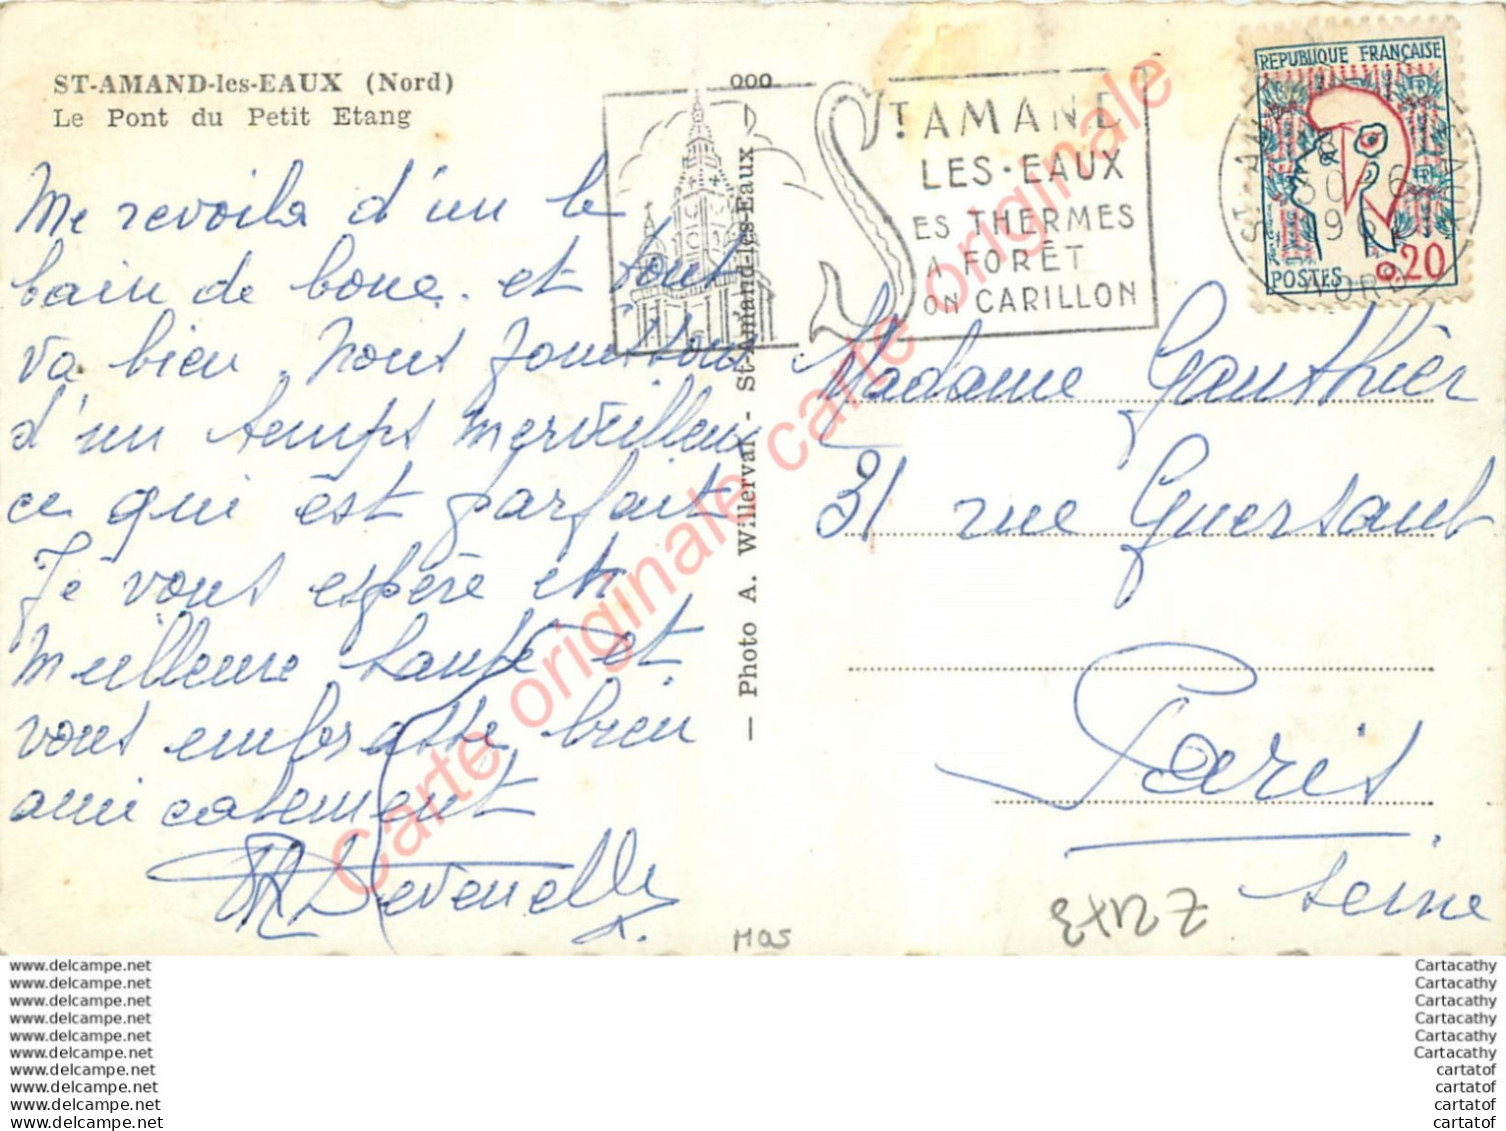 ST-AMAND-les-EAUX (Nord)
Le Pont du Petit Etang
Me revoila d'un le
bain de boue. et tout
va bien. Nous jouissons
d'un temps merveilleux
ce qui est parfait
Je vous espère en
meilleure santé et
vous embrasse bien
amicalement
— Photo A. Willerval - St-Amand-les-Eaux —
ooo
ST AMAND
LES-EAUX
ES THERMES
A FORÊT
ON CARILLON
REPUBLIQUE FRANÇAISE
POSTES 0,20
Madame Gauthier
31 rue Guersant
Paris
Seine
MOS
Carte originale carte originale carte originale
www.delcampe.net
www.delcampe.net
www.delcampe.net
www.delcampe.net
www.delcampe.net
www.delcampe.net
www.delcampe.net
www.delcampe.net
www.delcampe.net
www.delcampe.net
Cartacathy
Cartacathy
Cartacathy
Cartacathy
Cartacathy
Cartacathy
cartatof
cartatof
cartatof
cartatof